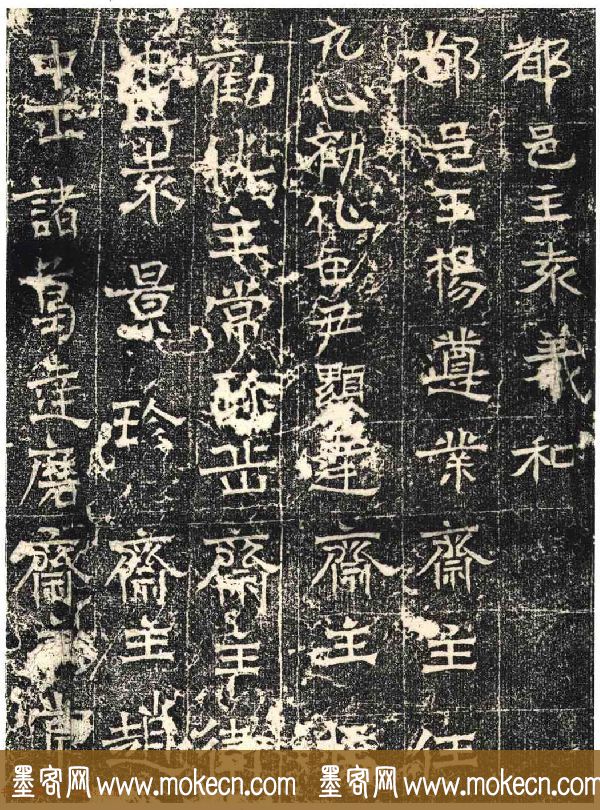 都邑主袁義和
都邑主楊遵業 齋主任
元心勸化主尹顯達 齋主
勸化主常 岳 齋主衛
中正袁景珍 齋主趙
中正諸葛達磨 齋主常
墨客网 www.mokecn.com 墨客网 www.mokecn.com